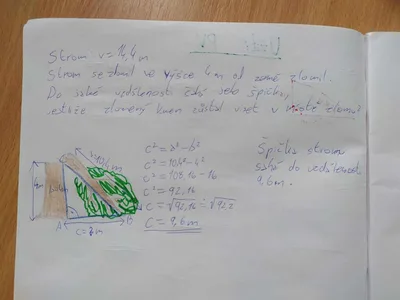 Strom v = 14,4 m
Strom se zlomil ve výšce 4 m od země zlomil.
Do jaké vzdálenosti sahá jeho špička,
jestliže zlomený kmen zůstal viset v místě zlomu?
c² = a² - b²
c² = 10,4² - 4²
c² = 108,16 - 16
c² = 92,16
c = √92,16 = √92,2
c = 9,6 m
Špička stromu
sahá do vzdálenosti
9,6 m.
4m
10,4 m
A
B
c = ? m